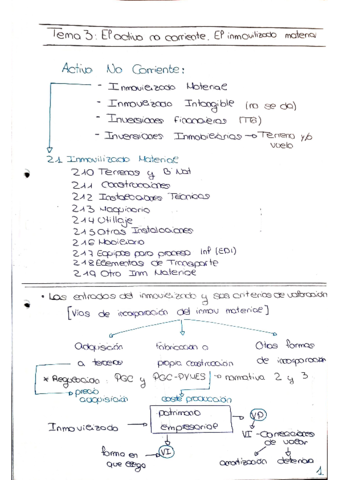 Tema 3: El activo no corriente. El inmovilizado material
Activo No Corriente:
- Inmovilizado Material
- Inmovilizado Intangible (no se da)
- Inversiones Financieras (T8)
- Inversiones Inmobiliarias → Terreno y/o
vuelo
21 Inmovilizado Material
210 Terrenos y B Nat
211 Construcciones
212 Instalaciones Técnicas
213 Maquinaria
214 Utillaje
215 Otras Instalaciones
216 Mobiliario
217 Equipos para proceso Inf (EDI)
218 Elementos de Transporte
219 Otro Inm Material
• Las entradas del inmovilizado y sus criterios de valoración
[Vías de incorporación del inmov material]
Adquisición fabricación o Otras formas
a terceros propia construcción de incorporación
* Regulación: PGC y PGC-PYMES → normativa 2 y 3
→ precio adquisición coste producción
Inmovilizado patrimonio empresarial VD
VI - Correcciones
de valor
forma en VI
que llega amortización deterioro
1